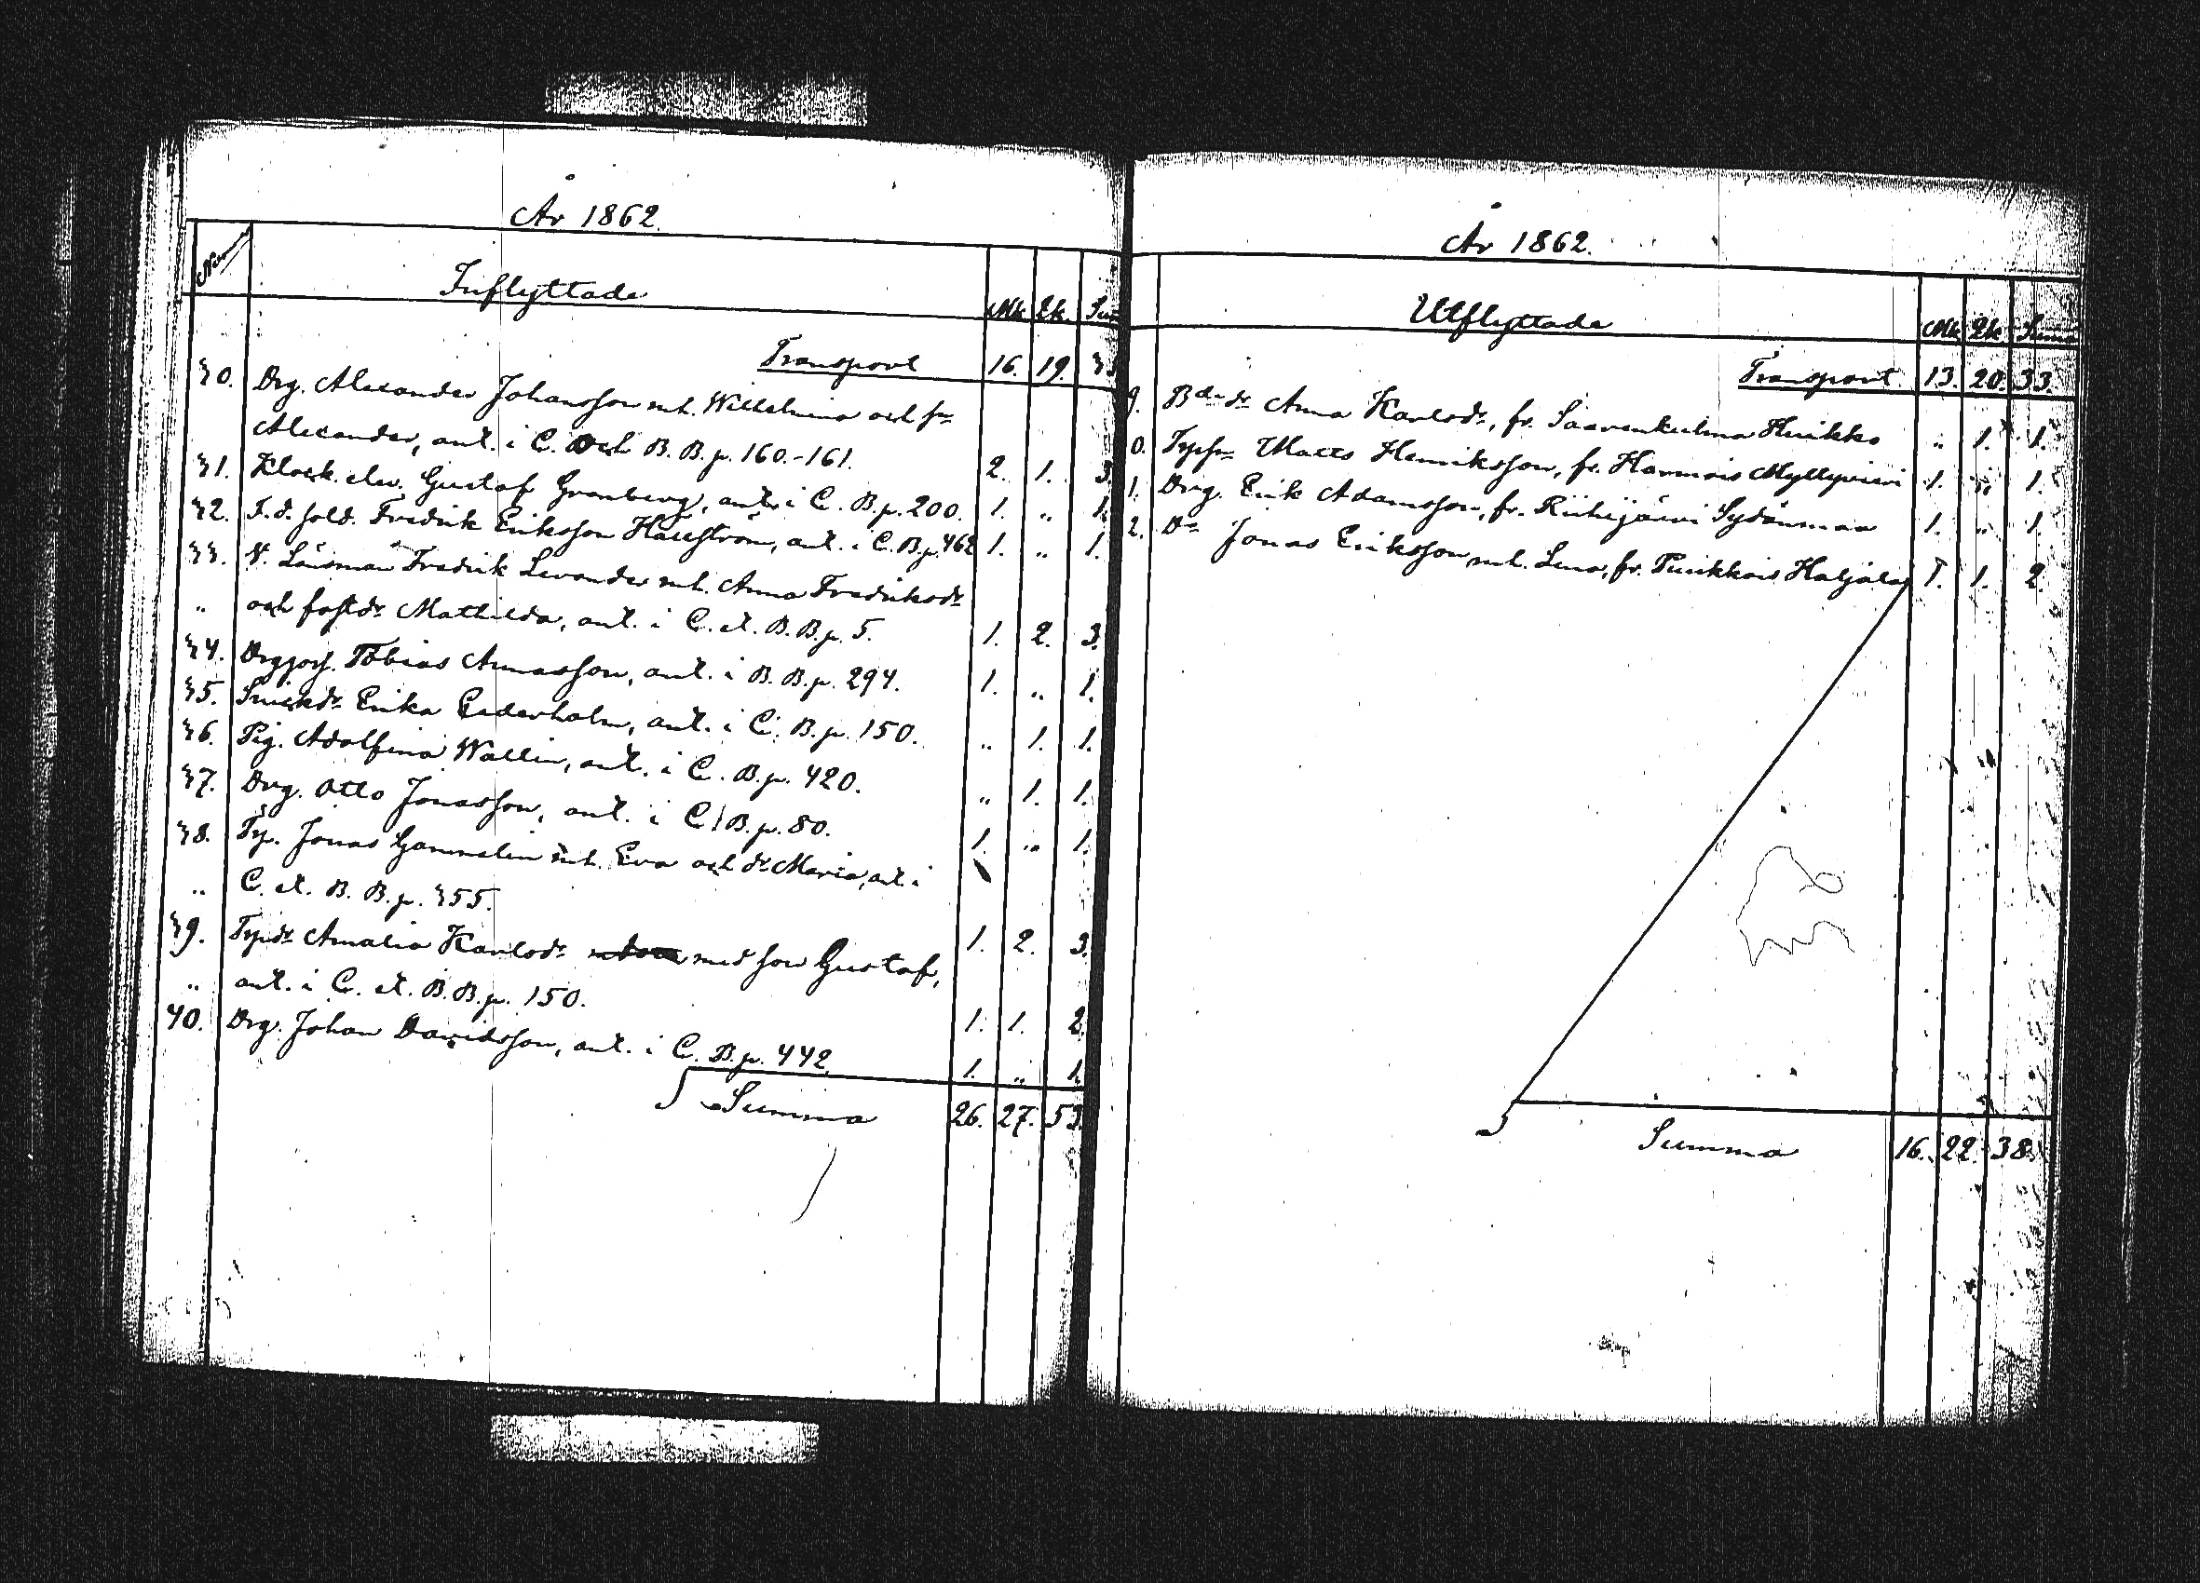 År 1862.
Num
Inflyttade
Mk. Qk. Sum
Transport 16. 19. 35
30. Drg. Alexander Johansson m.h. Wilhelmina och sn
Alexander, ant. i C. och B. B. p. 160.-161. 2. 1. 3.
31. Klock. elev. Gustaf Granberg, ant. i C. B. p. 200. 1. „ 1.
32. F. d. sold. Fredrik Eriksson Hallström, ant. i C. B. p. 462 1. „ 1.
33. V. Länsman Fredrik Levander m.h. Anna Fredriksdr
„ och fostdr Mathilda, ant. i C. et. B. B. p. 5. 1. 2. 3.
34. Drg Tobias Annasson, ant. i B. B. p. 294. 1. „ 1.
35. Erika Cederholm, ant. i C. B. p. 150. „ 1. 1.
36. Pig. Adolfina Wallin, ant. i C. B. p. 420. „ 1. 1.
37. Drg. Otto Jonasson, ant. i C. B. p. 80. 1. „ 1.
38. Tp. Jonas Gammelin m.h. Eva och dr Maria, ant. i
„ C. et. B. B. p. 355. 1. 2. 3.
39. Tpdr Amalia Karlsdr med son Gustaf,
„ ant. i C. et. B. B. p. 150. 1. 1. 2.
40. Drg. Johan Davidsson, ant. i C. B. p. 442. 1. „ 1.
Summa 26. 27. 53.
År 1862.
Utflyttade
Mk Qk Suma
Transport 13. 20. 33.
9. Bdedr Anna Karlsdr, fr. Saarenkulma Huikko „ 1. 1.
0. Tpsn Matts Henriksson, fr. Harmois Myllyvieri 1. „ 1.
1. Drg. Erik Adamsson, fr. Riihijärvi Sydänmaa 1. „ 1.
2. Do Jonas Eriksson m.h. Lena, fr. Puikkois Haljala 1. 1. 2.
Summa 16. 22. 38.